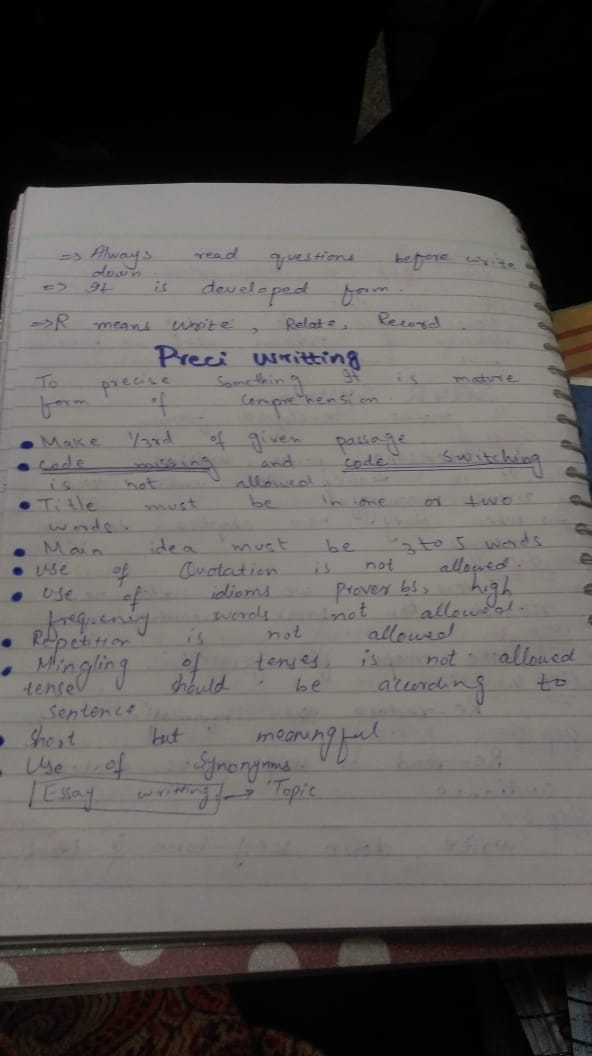 ⇒ Always read questions before write
down.
⇒ It is developed form.
⇒ R means write, Relate, Record.
Preci writting
To precise something It is mature
form of comprehension
• Make 1/3rd of given passage
• code missing and code switching
is not allowed
• Title must be in one or two
words.
• Main idea must be 3 to 5 words
• use of Quotation is not allowed.
• use of idioms proverbs, high
frequency words not allowed.
• Repetition is not allowed
• Mingling of tenses is not allowed
tense should be according to
sentence
• Short but meaningful
• Use of Synonynms.
Essay writting → Topic